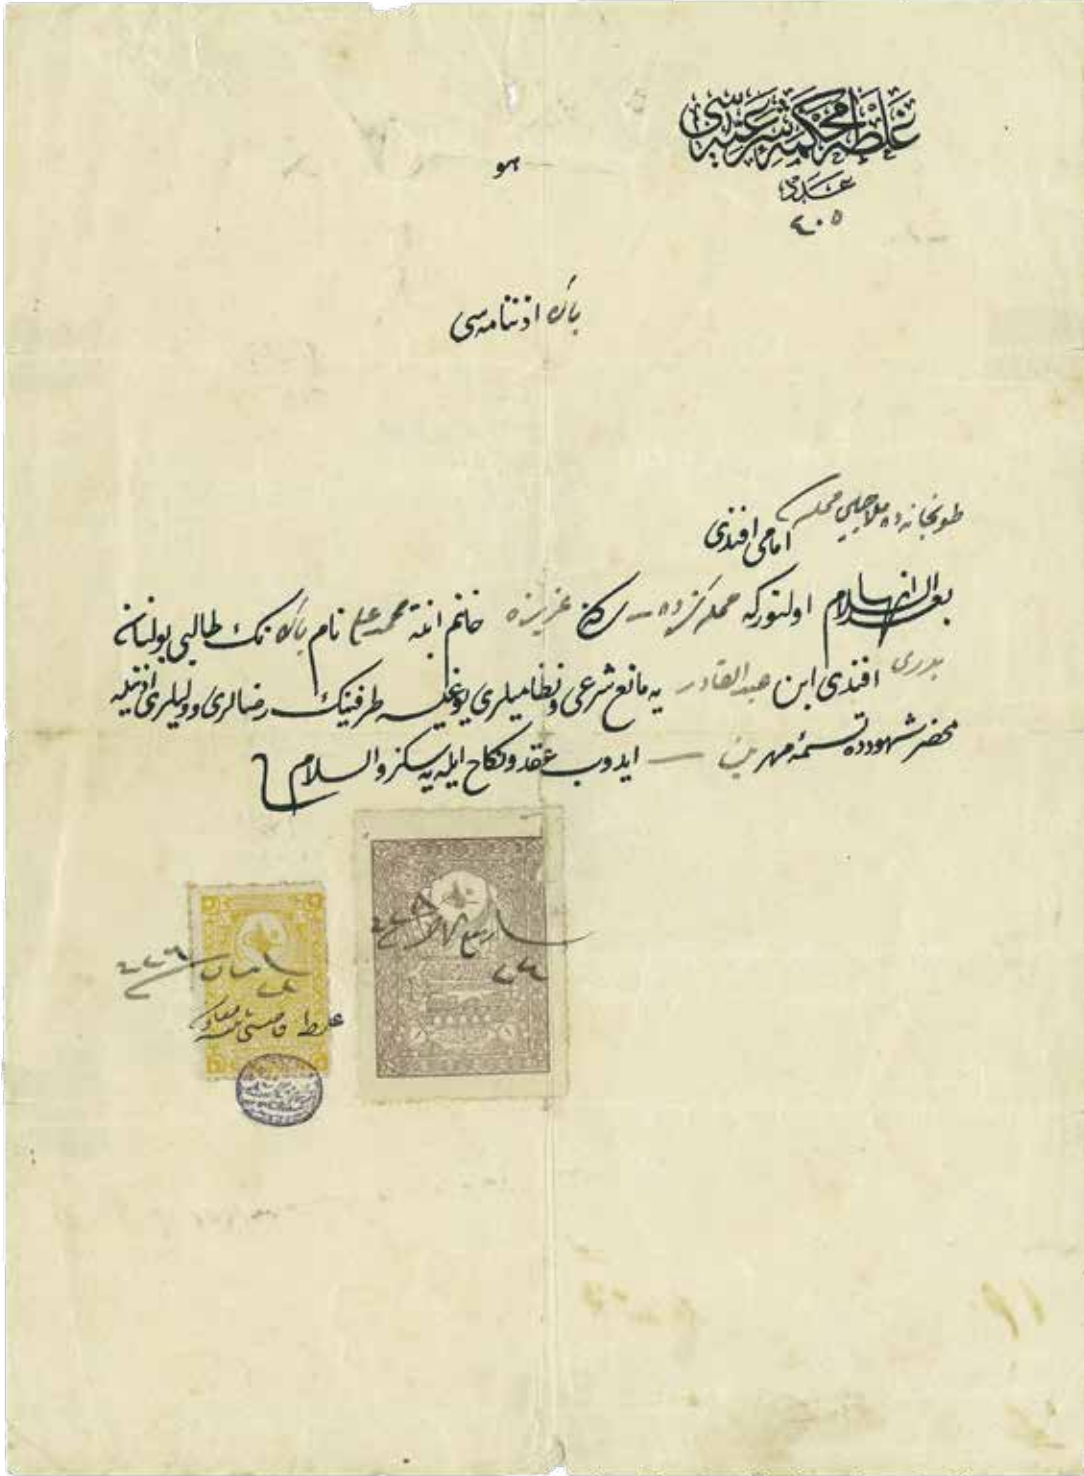 غلطه محكمۀ شرعیه‌سی
عدد
٤٠٥
هو
باكره اذننامه‌سی
طوپخانه‌ده ملا چلبی محله‌سی
امامی افندی
بعد السلام انها اولنور كه محله‌ڭزده ساكنه عزیزه خانم ابنة محمد علی نام باكره‌نك طالبی بولنان
بدری افندی ابن عبدالقادر یه مانع شرعی و نظامیلری یوغیسه طرفینك رضالری و ولیلری اذنیله
محضر شهودده تسمیۀ مهر ایدوب عقد و نكاح ایلیه‌سكز والسلام
غلطه قاضیسی